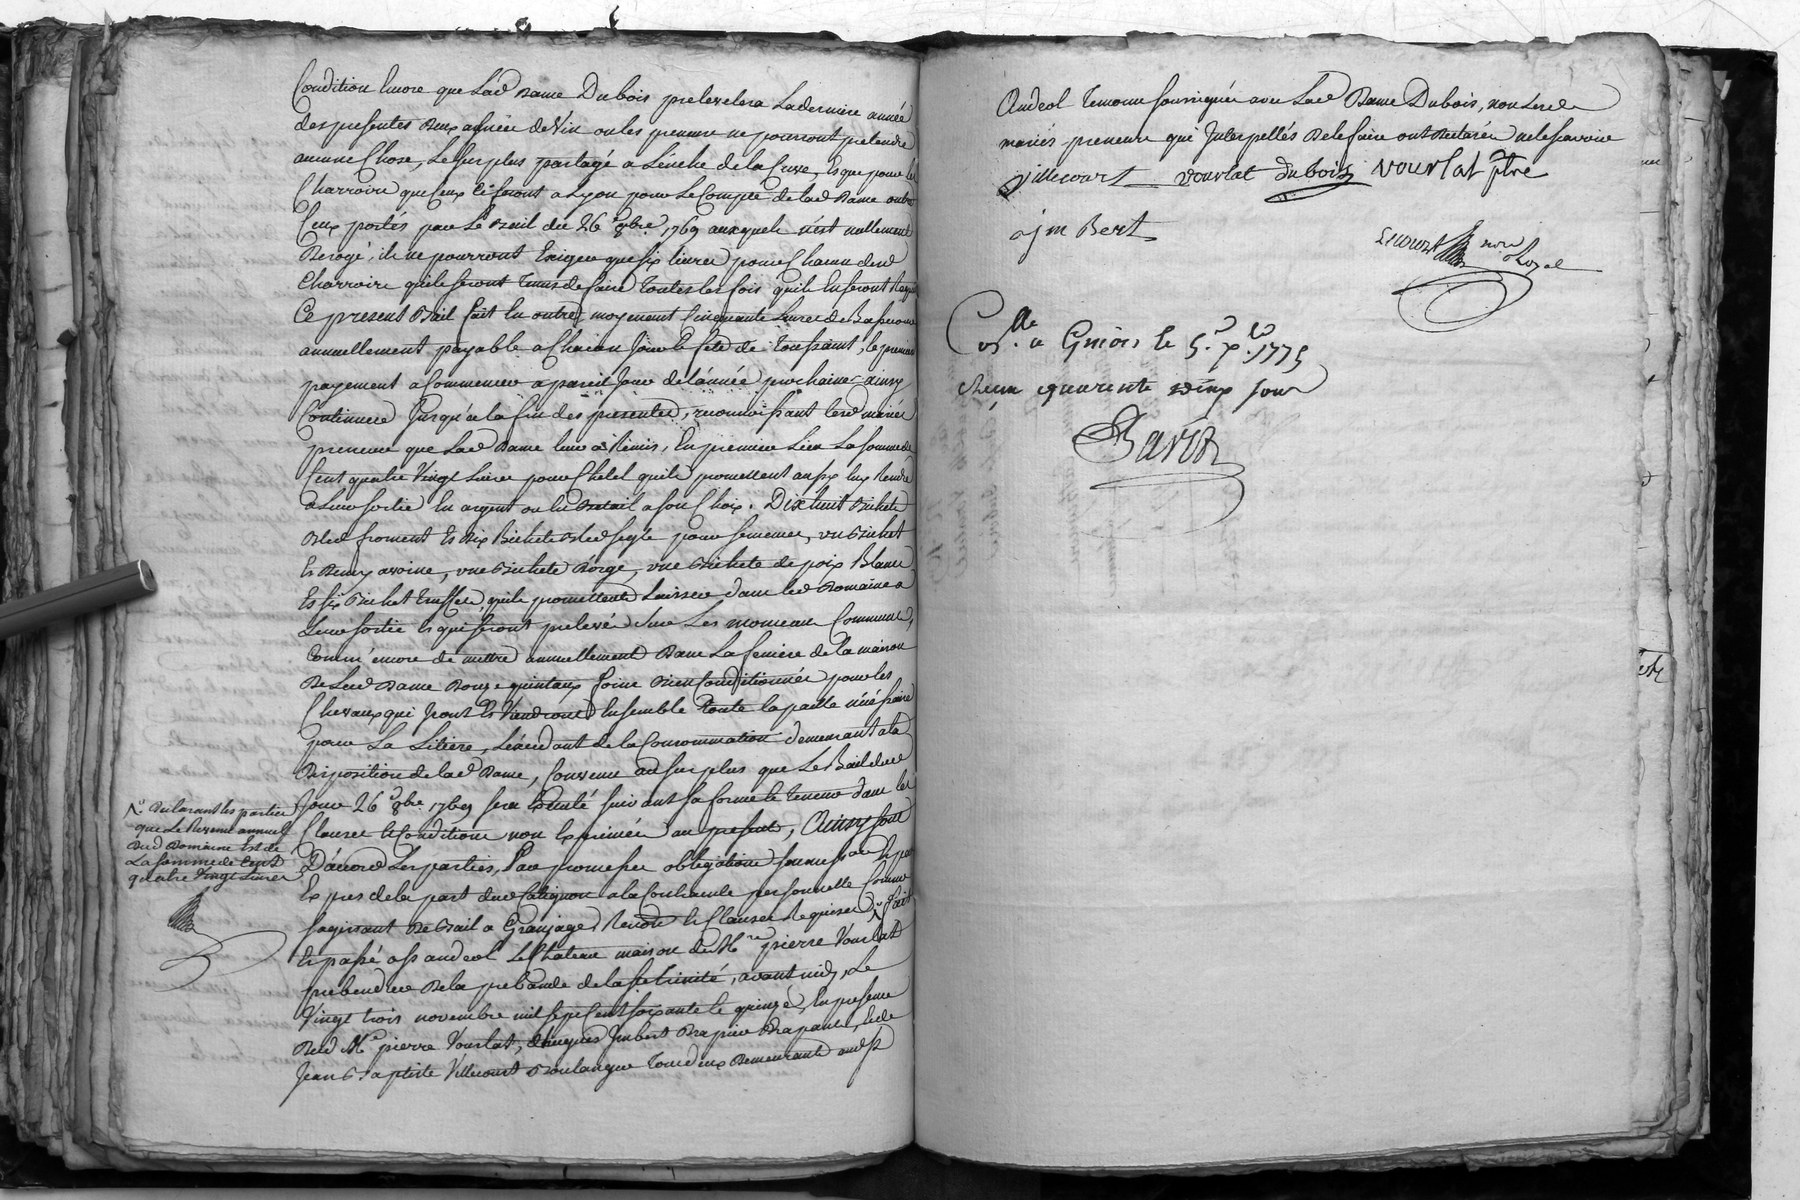 Condition Encore que Lad Dame Dubois prelevelera La derniere année
des presentes Deux asnées de Vin ou les preneurs ne pourront pretendre
aucune Chose, Le surplus partagé a Leniche de la Cuve, Et que pour les
Charroirs que Ceux feront a Lyon pour Le Compte de lad Dame outre
Ceux portés par Le Bail du 26 8bre 1769 auxquels n'est nullement
Derogé, ils ne pourront Exiger que six livres pour Chacun desd
Charroirs qu'ils seront tenus de faire Toutes les fois qu'ils En seront Requis
Ce present Bail fait En outre moyenant Cinquante Livres de
annuellement payable a Chacun Jour & fete de Toussaint, le premier
payement a Commencer a pareil Jour de l'année prochaine ainsy
Continuer Jusqu'a la fin des presentes, reconnoissant lesd mariés
preneurs que Lad Dame leur a Remis, En premier Lieu La somme de
Cent quatre Vingt Livres pour Chetel qu'ils promettent aussy luy Rendre
a Leur sortie En argent ou En Betail a son Choix. Dix huit Bichets
Bled froment Et Dix Bichets Bled seigle pour semence, un Bichet
Et Demy avoine, une Bichete D'orge, une Bichete de poix Blancs
Et six Bichet Truffes, qu'ils promettent Laisser dans led Domaine a
Leur sortie Et qui seront prelevés sur Les monceaux Communs,
Comm'encore de mettre annuellement Dans La feniere de la maison
De Lad Dame Douze quintaux foin Bien Conditionnés pour les
Chevaux qui Jront Et Viendront Ensemble Toute la paille nécéssaire
pour La Litiere, L'éxcédant de la Consommation demeurant a la
Disposition de lad Dame, Convenu au surplus que Le Bail dud
Jour 26 8bre 1769 sera Exécuté suivant sa forme & Teneur dans les
Clauses & Conditions non Exprimées au present, Ainsy sont
D'accord Les parties, Par promesses obligations soumissions
Expres de la part dud Catignon a la Contrainte personnelle Comme
s'agissant de Bail a Grangeage, Renon & Clauses Requises, fait
Et passé a St andeol Le Chateau maison de Mre pierre Vourlat
prebendier De la prebande de la ste trinité, avant midy, Le
Vingt trois novembre mil sept Cent soixante & quinze, En presence
Dud Mre pierre Vourlat, d'hugues Jmbert Drapier Drapant, & de
Jean Baptiste Villecourt Boulanger Tous deux Demeurant aud St
Declarant les parties
que Le Revenu annuel
Dud Domaine Est de
La somme de Cent
quatre Vingt Livres
Andeol Temoins soussignés avec Lad Dame Dubois, non Lesd
mariés preneurs qui Jnterpellés De le faire ont Declarés ne le scavoir
Villecourt Vourlat dubois Vourlat ptre
Bert
Royal
Collé a Givors le 5. xbre 1775
Recu quarente